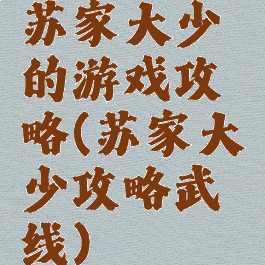 苏家大少
的游戏攻
略(苏家大
少攻略武
线)